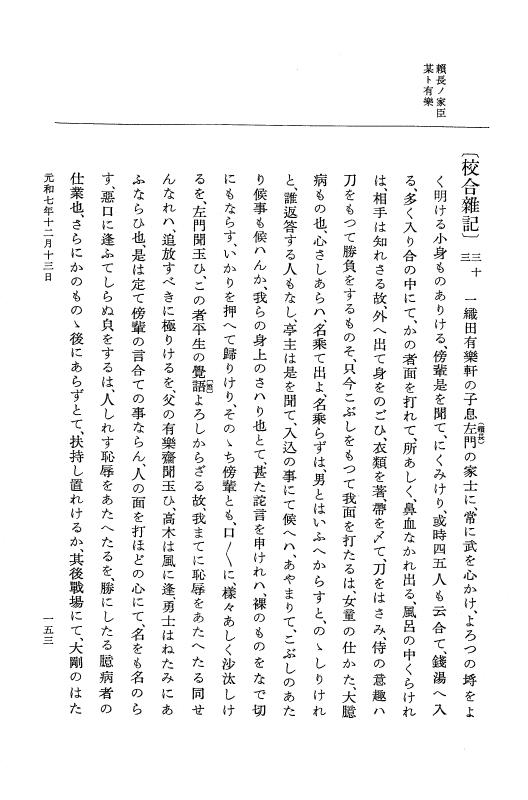 賴長ノ家臣
某ト有樂
〔校合雜記〕三十三 一織田有樂軒の子息左門(賴長)の家士に、常に武を心かけ、よろつの埓をよ
く明ける小身ものありける、傍輩是を聞て、にくみけり、或時四五人も云合て、錢湯へ入
る、多く入り合の中にて、かの者面を打れて、所あしく、鼻血なかれ出る、風呂の中くらけれ
は、相手は知れさる故、外へ出て身をのごひ、衣類を著、帶を〆て、刀をはさみ、侍の意趣ハ
刀をもつて勝負をするものそ、只今こぶしをもつて我面を打たるは、女童の仕かた、大臆
病もの也、心さしあらハ、名乘て出よ、名乘らずは、男とはいふへからすと、のゝしりけれ
と、誰返答する人もなし、亭主は是を聞て、入込の事にて候へハ、あやまりて、こぶしのあた
り候事も候ハんか、我らの身上のさハり也とて、甚た詫言を申けれハ、裸のものをなで切
にもならす、いかりを押へて歸りけり、そのゝち傍輩とも、口〳〵に、樣々あしく沙汰しけ
るを、左門聞玉ひ、この者平生の覺語(悟)よろしからざる故、我まてに恥辱をあたへたる同せ
んなれハ、追放すべきに極りけるを、父の有樂齋聞玉ひ、高木は風に逢、勇士はねたみにあ
ふならひ也、是は定て傍輩の言合ての事ならん、人の面を打ほどの心にて、名をも名のら
す、惡口に逢ふてしらぬ㒵をするは、人しれす恥辱をあたへたるを、勝にしたる臆病者の
仕業也、さらにかのものゝ後にあらずとて、扶持し置れけるか、其後戰場にて、大剛のはた
元和七年十二月十三日
一五三